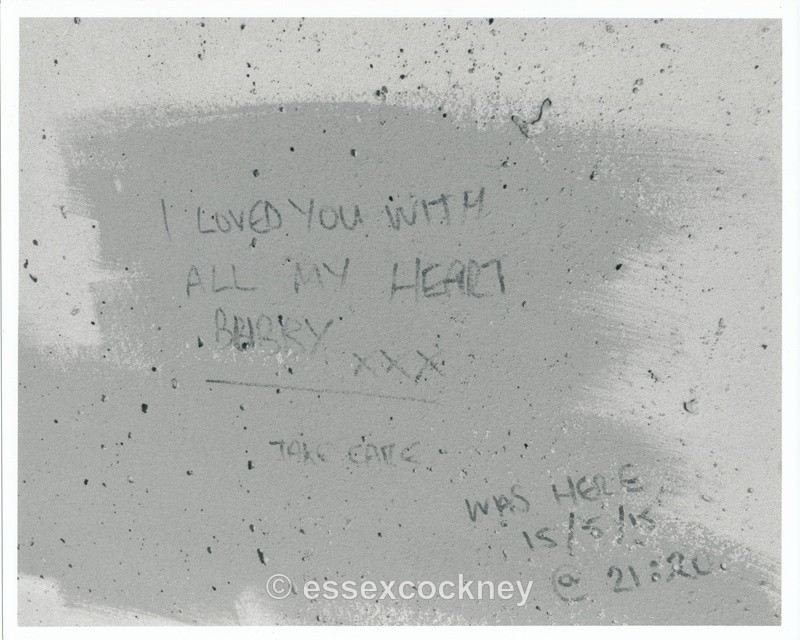 I LOVED YOU WITH
ALL MY HEART
BARRY
XXX
TAKE CARE
WAS HERE
15/5/15
@ 21:20
© essexcockney